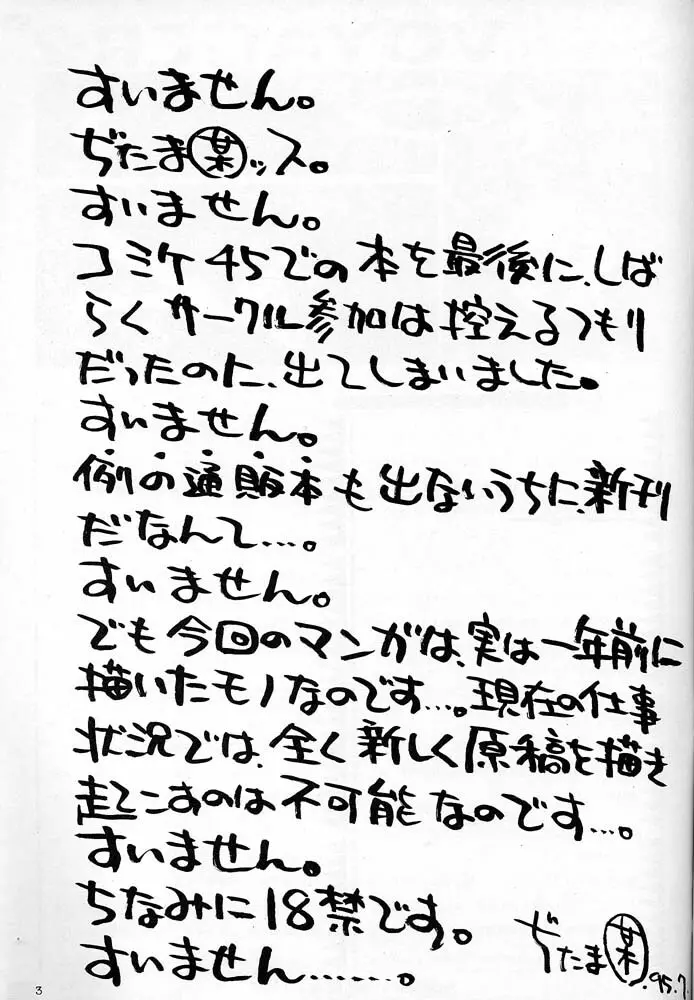 すいません。
ぢたま㊙ッス。
すいません。
コミケ45での本を最後に、しば
らくサークル参加は控えるつもり
だったのに、出てしまいました。
すいません。
例の通販本も出ないうちに、新刊
だなんて…。
すいません。
でも今回のマンガは、実は一年前に
描いたモノなのです…。現在の仕事
状況では、全く新しく原稿を描き
起こすのは不可能なのです…。
すいません。
ちなみに18禁です。
すいません……。
ぢたま某
.95.7
3